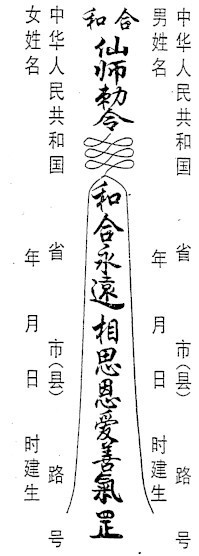 中华人民共和国 省 市(县) 路 号
男姓名 年 月 日 时建生
和合
仙师勅令
和合永遠相思恩爱善氣罡
中华人民共和国 省 市(县) 路 号
女姓名 年 月 日 时建生